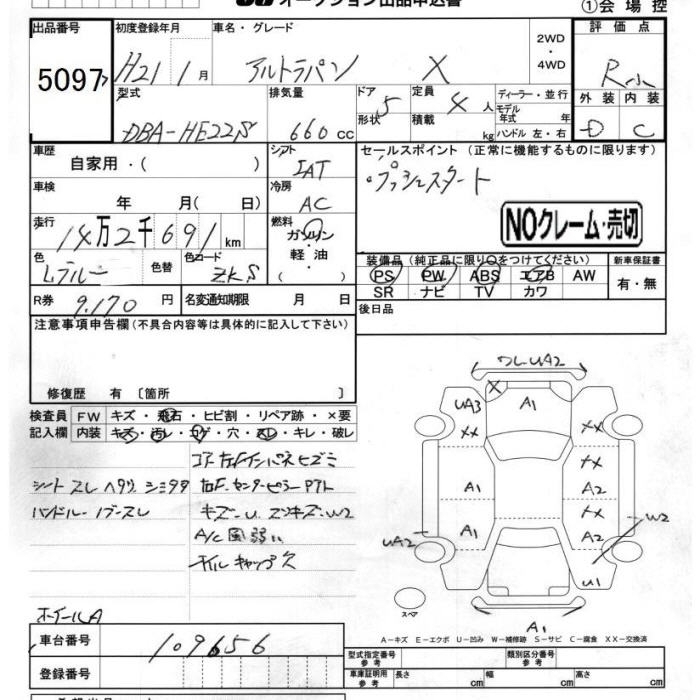 オークション出品申込書
①会場控
出品番号 5097
初度登録年月 H21 1月
車名・グレード アルトラパン X
2WD・4WD
評価点 R小
型式 DBA-HE22S
排気量 660cc
ドア 5 形状
定員 4人 積載 kg
ディーラー・並行
モデル年式 年
ハンドル 左・右
外装 D
内装 C
車歴 自家用・( )
シフト IAT
車検 年 月( 日)
冷房 AC
セールスポイント (正常に機能するものに限ります)
・プッシュスタート
NOクレーム・売切
走行 14万2千691km
燃料 ガソリン・軽油・( )
色 Lブルー 色替
色コード ZKS
装備品 (純正品に限り○をつけてください)
新車保証書
PS PW ABS エアB AW
有・無
SR ナビ TV カワ
R券 9,170円
名変通知期限 月 日
後日品
注意事項申告欄 (不具合内容等は具体的に記入して下さい)
修復歴 有 〔箇所 〕
検査員記入欄
FW キズ・飛石・ヒビ割・リペア跡・×要
内装 キズ・汚レ・コゲ・穴・スレ・キレ・破レ
シートスレ ヘタリ シミ
A/C 風弱い
ホイールA
ワレUA2
UA3
A1
XX
XX
XX
A1
A2
XX
A1
A2
W2
UA2
U1
スペア
A1
A-キズ E-エクボ U-凹み W-補修跡 S-サビ C-腐食 XX-交換済
車台番号 109656
登録番号
型式指定番号 参考
類別区分番号 参考
車庫証明用 参考
長さ cm
幅 cm
高さ cm